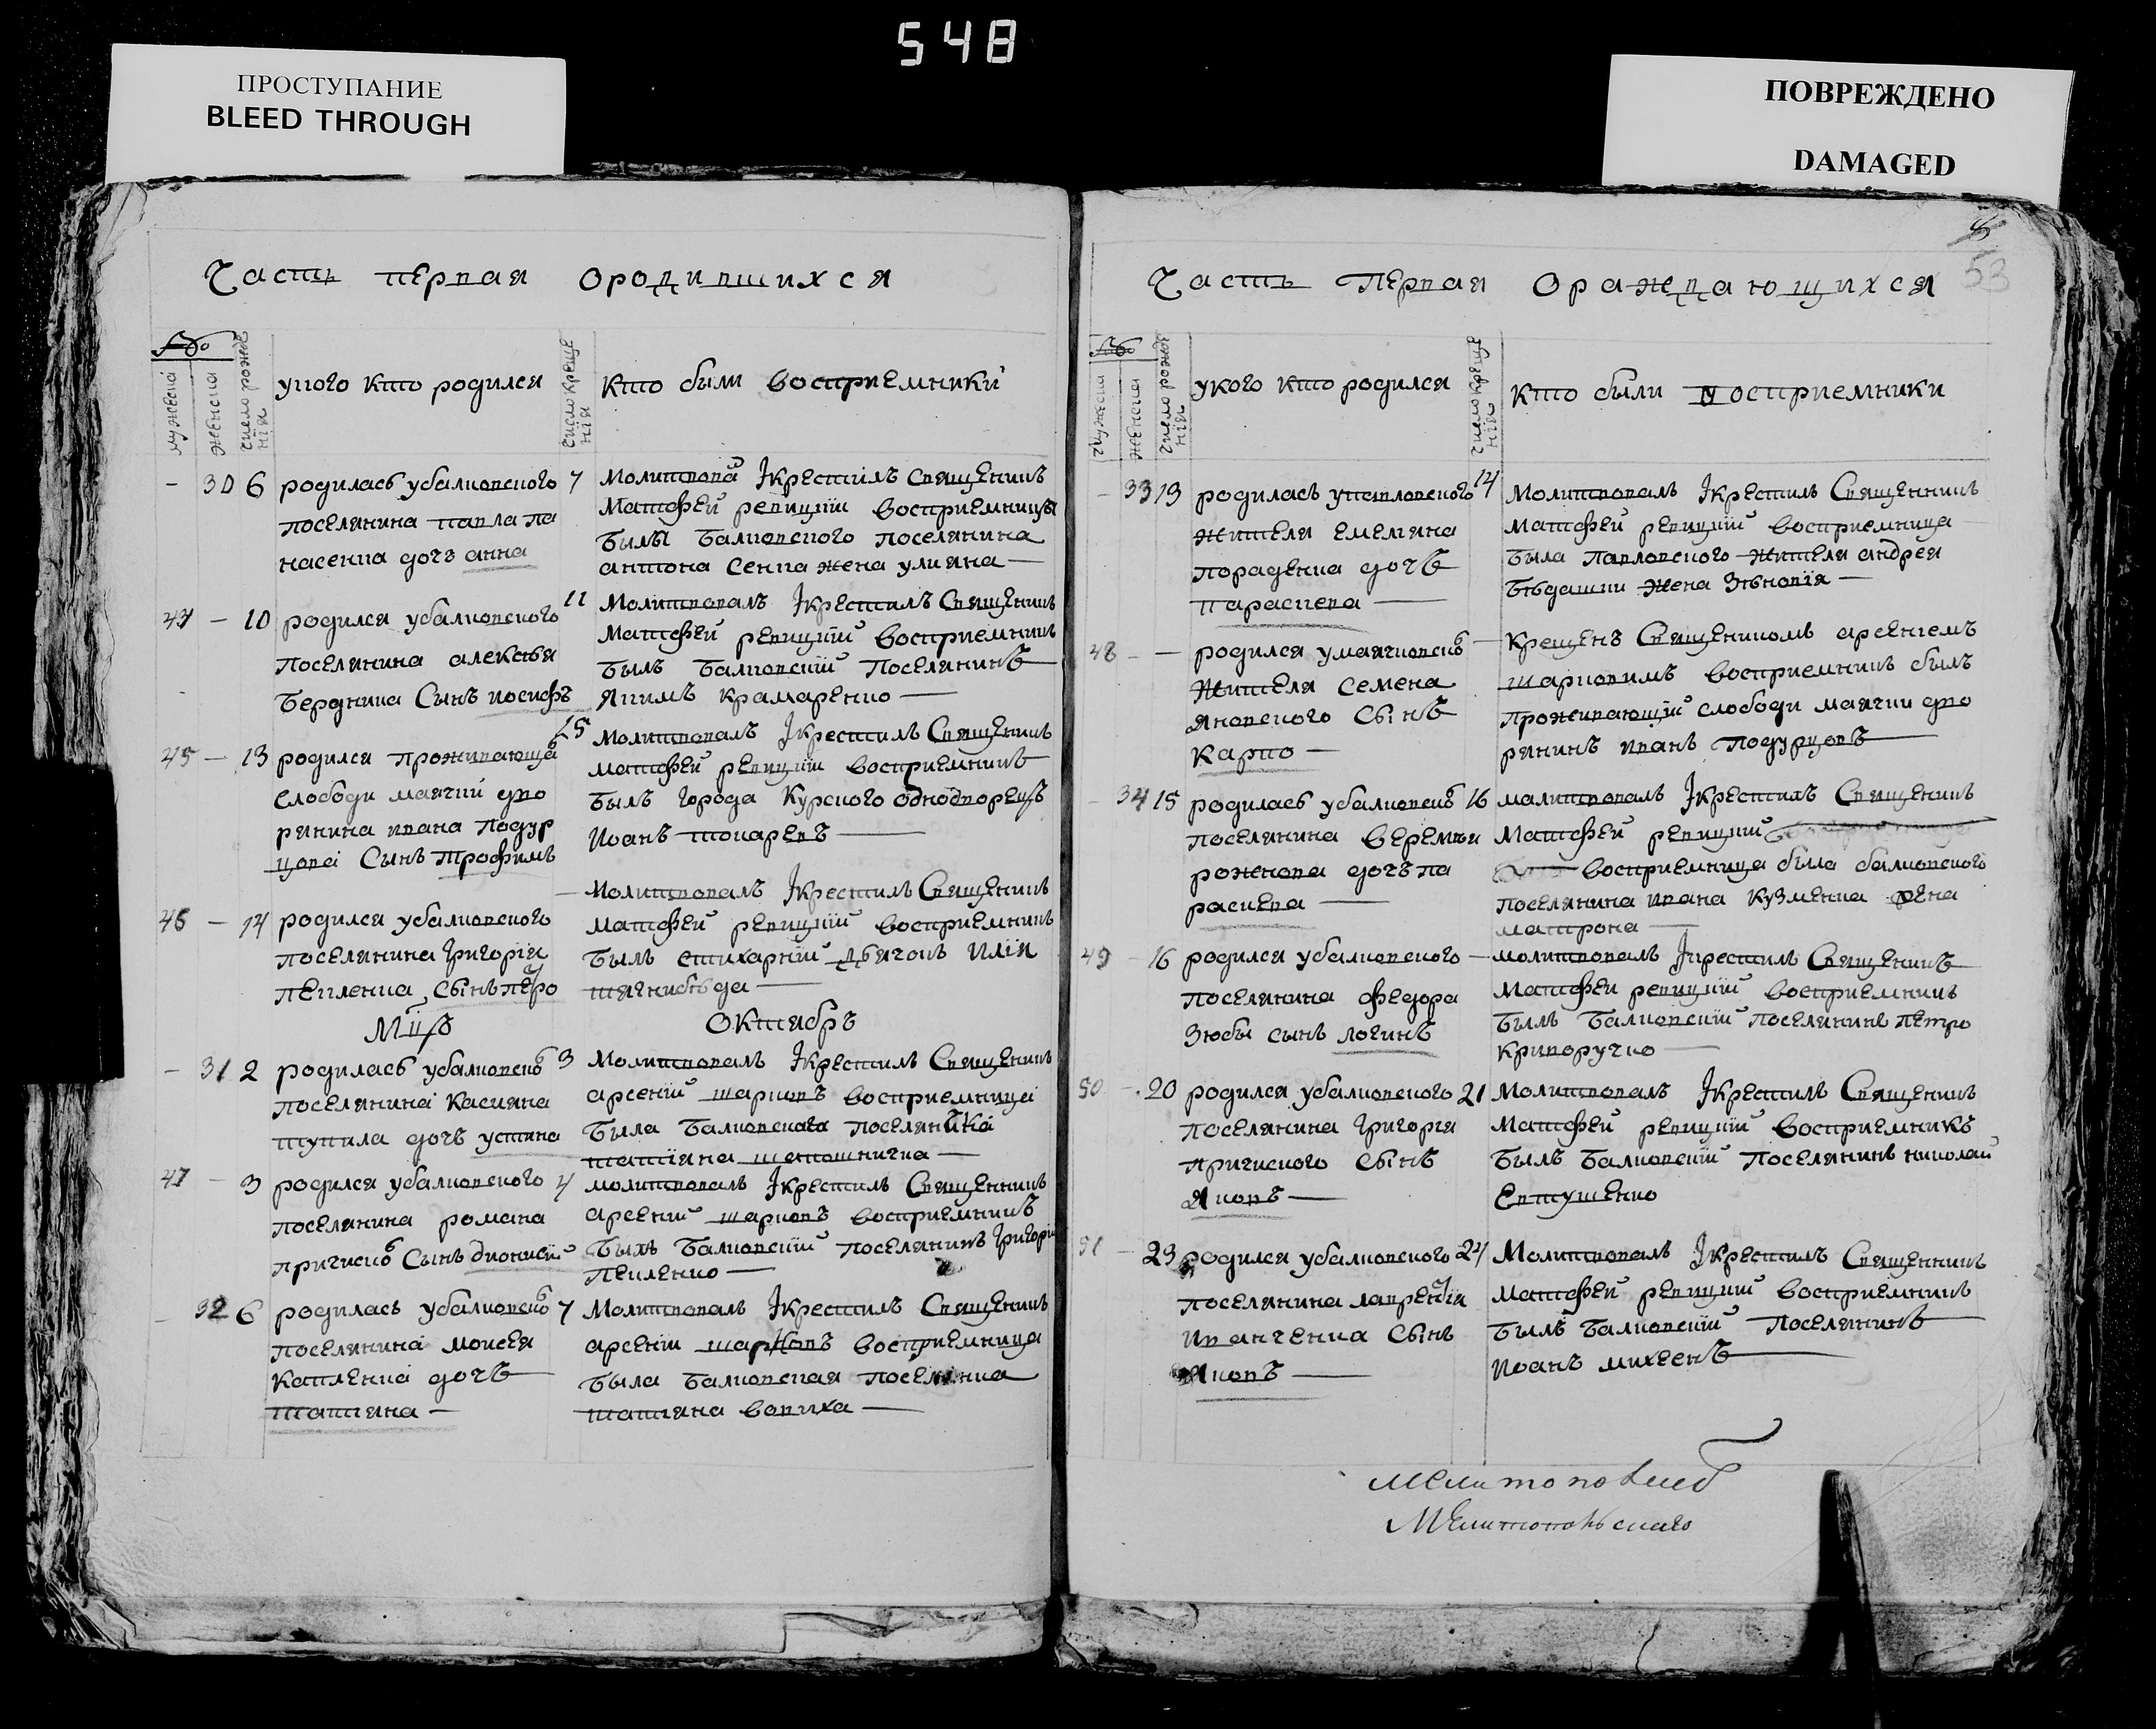 548
ПРОСТУПАНИЕ
BLEED THROUGH
ПОВРЕЖДЕНО
DAMAGED
Часть первая ородившихся
№
мужеска
женска
число рожде
нія
укого кто родился
число креще
нія
кто были восприемники
- 30 6 родилась убалковского 7
поселянина павла па
насенка дочъ анна
Молитвова Ікрестилъ Священикъ
Матфей ревицкій восприемницы
былы балковского поселянина
антона сенка жена улияна
44 - 10 родился убалковского 11
поселянина алексѣя
бердника Сынъ иосифъ
Молитвовалъ Ікрестилъ Священикъ
Матфей ревицкій восприемникъ
былъ балковскій поселянинъ
Якимъ крамаренко
45 - 13 родился проживающа 15
слободи маячки дво
рянина ивана подур
цова Сынъ трофимъ
Молитвовалъ Ікрестилъ Священикъ
матфей ревицкій восприемникъ
былъ города Курского однодворецъ
Иоанъ токаревъ
46 - 14 родился убалковского -
поселянина григорія
пекленка Сынъ петро
Молитвовалъ Ікрестилъ Священикъ
матфей ревицкій восприемникъ
былъ стихарній дьячокъ илія
тягнибѣда
Мцъ Октябръ
- 31 2 родилась убалковско 3
поселянина касияна
тупила дочъ устина
Молитвовалъ Ікрестилъ Священикъ
арсеній шарковъ восприемница
была балковская поселянка
татіяна шапошничка
47 - 3 родился убалковского 4
поселянина романа
причиско Сынъ дионисій
молитвовалъ Ікрестилъ Священникъ
арсеній шарковъ восприемникъ
былъ балковскій поселянинъ григорій
пекленко
- 32 6 родилась убалковско 7
поселянина моисея
катленка дочъ
татияна
Молитвовалъ Ікрестилъ Священикъ
арсеній шарковъ восприемница
была балковская поселянка
татияна вовчиха
53
Часть Первая Ораждающихся
№
мужеска
женска
число рожде
нія
укого кто родился
число креще
нія
кто были восприемники
- 33 13 родилась упавловского 14
жителя емеляна
дочъ
параскева
Молитвовалъ Ікрестилъ Священникъ
матфей ревицкій восприемница
была павловского жителя андрея
жена Зѣновія
48 - - родился умаячковско -
жителя семена
яновского Сынъ
карпо
крещенъ Священикомъ арсениемъ
шарковимъ восприемникъ былъ
проживающій слободи маячки дво
рянинъ иванъ подурцовъ
- 34 15 родилась убалковско 16
поселянина веремѣя
рожкова дочъ па
раскева
малитвовалъ Ікрестилъ Священикъ
Матфей ревицкій
восприемница была балковского
поселянина ивана кузменка жена
матрона
49 - 16 родился убалковского -
поселянина федора
Зюбы сынъ логинъ
молитвовалъ Ікрестилъ Священикъ
Матфей ревицкій восприемникъ
былъ балковскій поселянинъ петро
криворучко
50 - 20 родился убалковского 21
поселянина григорія
причиского Сынъ
Яковъ
Молитвовалъ Ікрестилъ Священикъ
Матфей ревицкій восприемникъ
былъ балковскій поселянинъ николай
Евтушенко
51 - 23 родился убалковского 24
поселянина лаврентія
иванченка Сынъ
Яковъ
Молитвовалъ Ікрестилъ Священникъ
матфей ревицкій восприемникъ
былъ балковскій поселянинъ
Иоанъ михеенъ
Мелитопольског
Мелитопольскаго